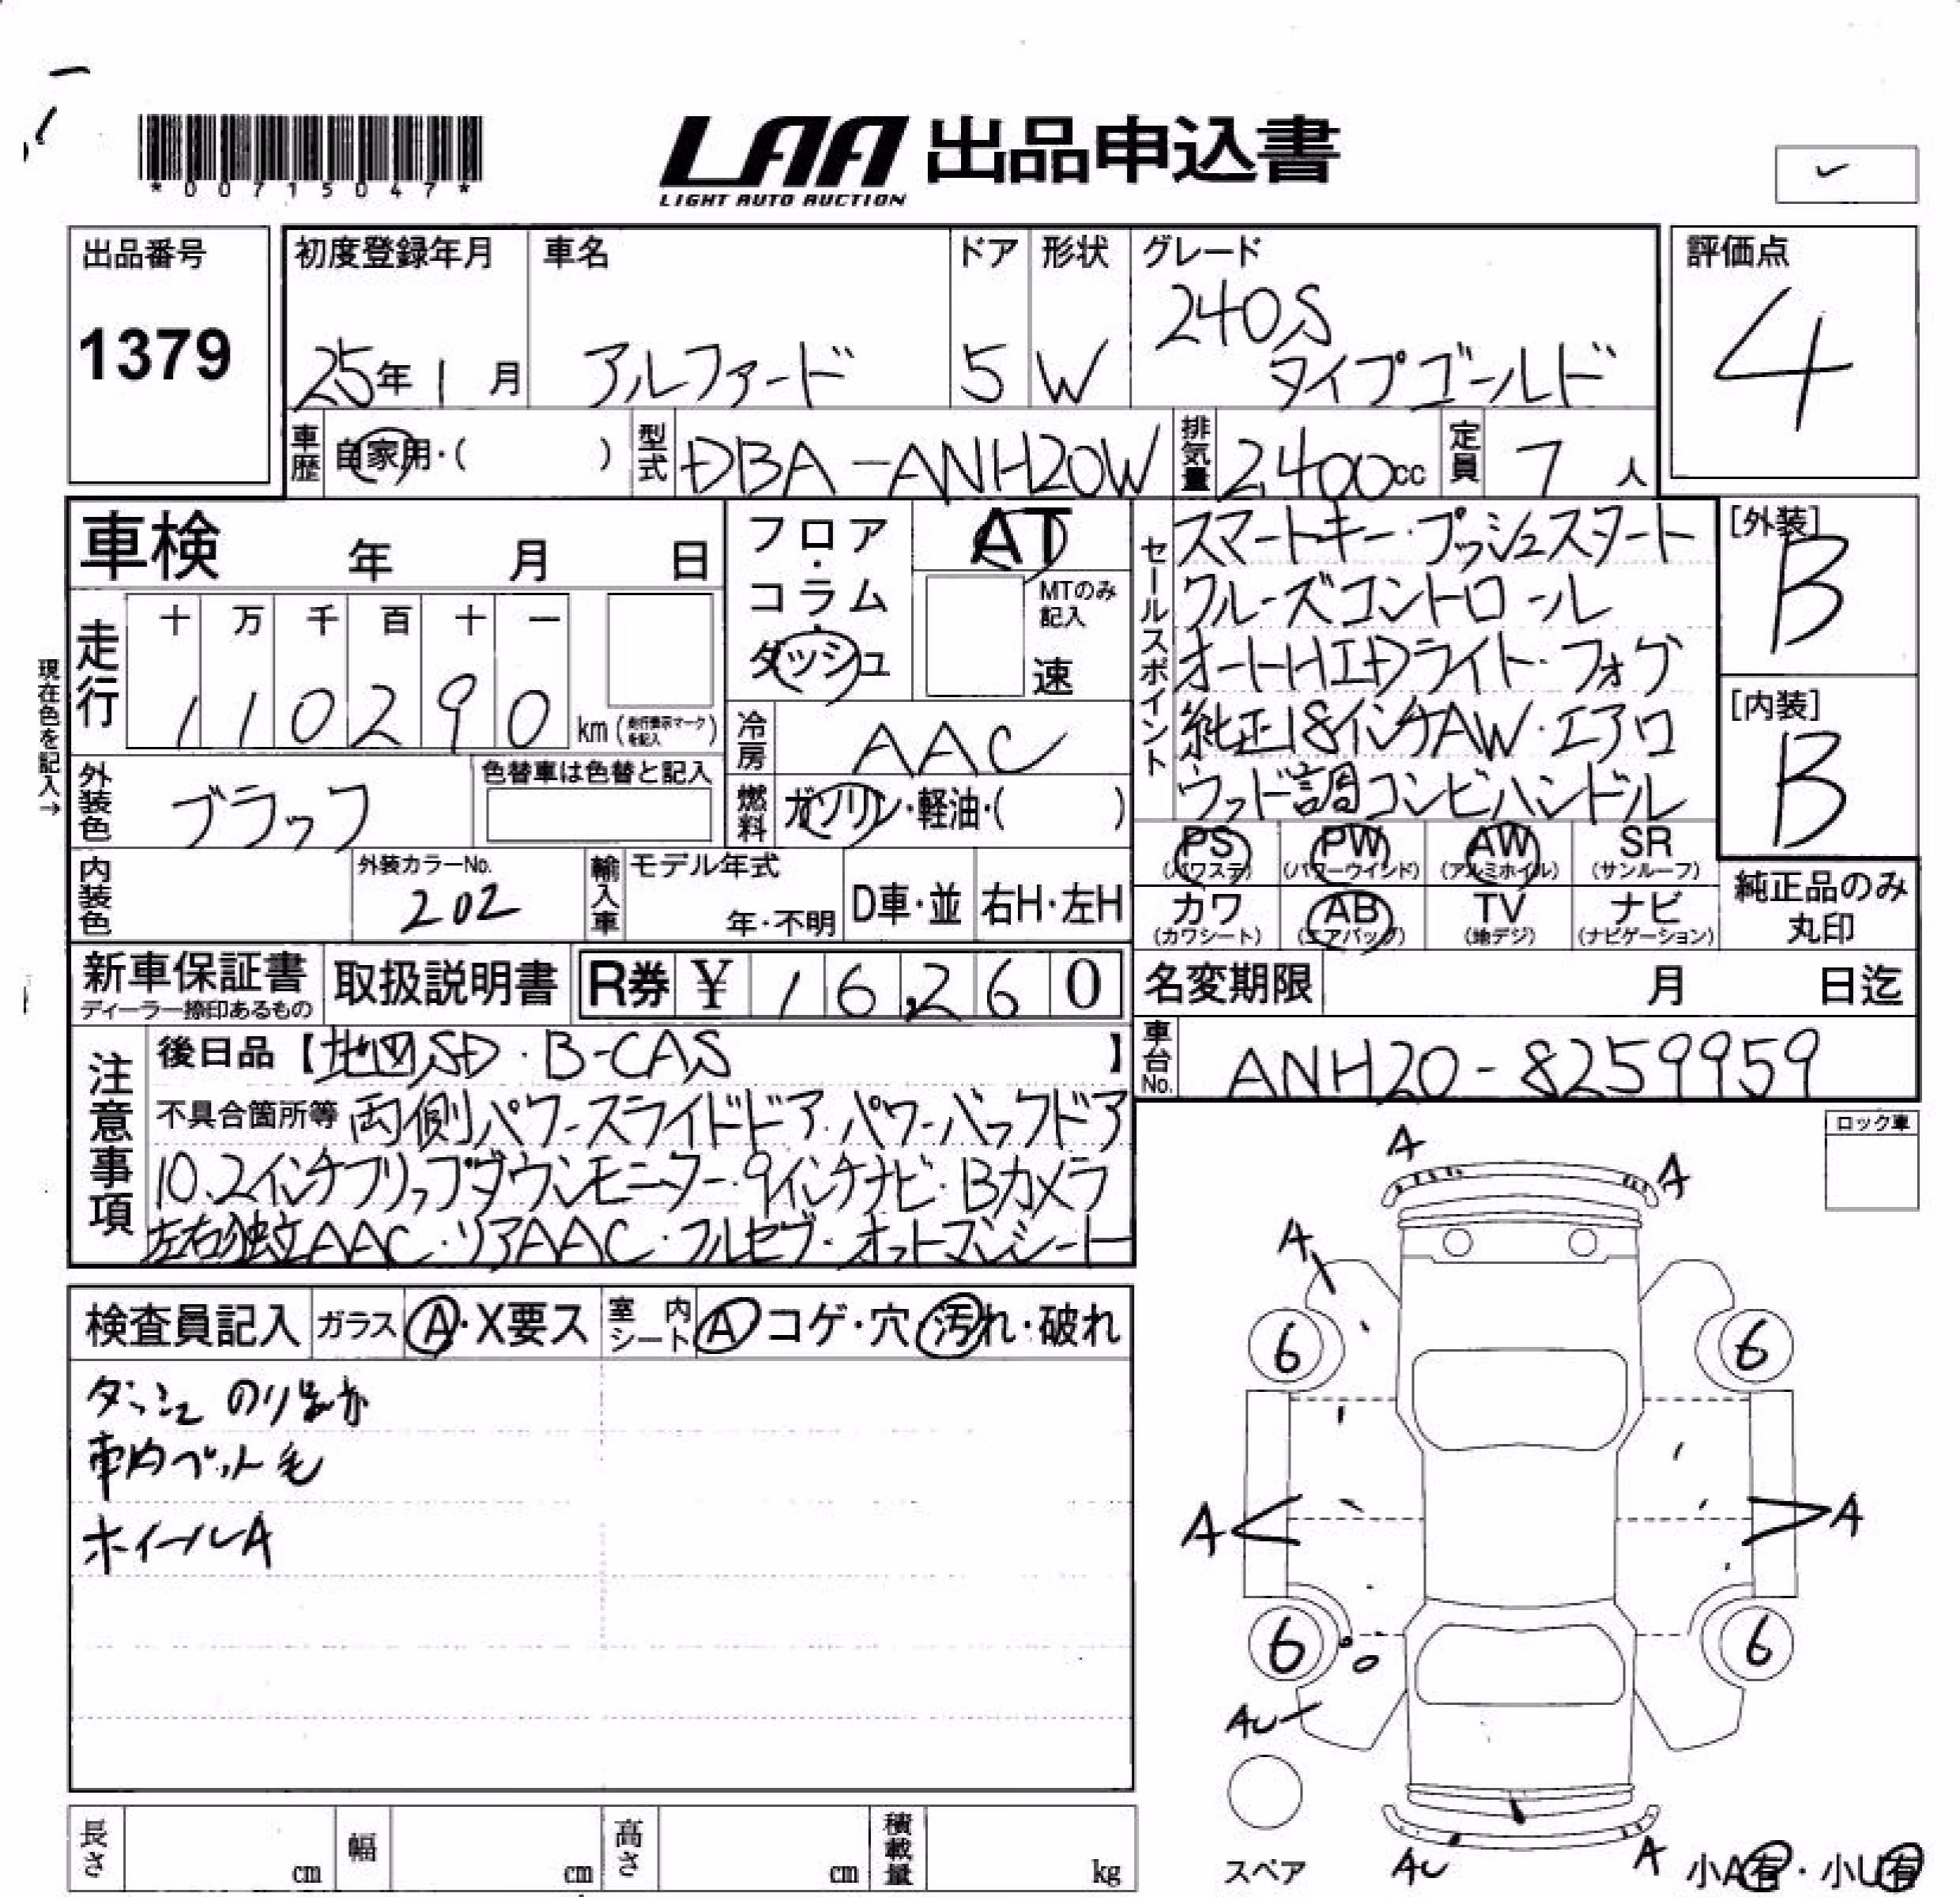 *00715047*
LAA 出品申込書
LIGHT AUTO AUCTION
出品番号
1379
初度登録年月
25年1月
車名
アルファード
ドア
5
形状
W
グレード
240S
タイプゴールド
評価点
4
車歴 自家用・( )
型式 DBA-ANH20W
排気量 2,400cc
定員 7人
車検 年 月 日
現在色を記入→
走行
十 万 千 百 十 一
1 1 0 2 9 0 km (走行表示マークを記入)
フロア・コラム・ダッシュ
AT
MTのみ記入
速
冷房 AAC
燃料 ガソリン・軽油・( )
外装色 ブラック
色替車は色替と記入
内装色
外装カラーNo.
202
輸入車
モデル年式
年・不明
D車・並
右H・左H
セールスポイント
スマートキー・プッシュスタート
クルーズコントロール
オートHIDライト・フォグ
純正18インチAW・エアロ
ウッド調コンビハンドル
[外装]
B
[内装]
B
PS PW AW SR
(パワステ) (パワーウインド) (アルミホイル) (サンルーフ)
カワ AB TV ナビ
(カワシート) (エアバッグ) (地デジ) (ナビゲーション)
純正品のみ
丸印
新車保証書
ディーラー捺印あるもの
取扱説明書
R券 ¥ 16,260
名変期限 月 日迄
車台No. ANH20-8259959
注意事項
後日品【地図SD・B-CAS】
不具合箇所等 両側パワースライドドア・パワーバックドア
10.2インチフリップダウンモニター・9インチナビ・Bカメラ
左右独立AAC・リアAAC・フルセグ・オットマンシート
検査員記入 ガラス A・X要ス 室内シート A コゲ・穴・汚れ・破れ
ダッシュ のりあと
車内ペット毛
ホイールA
ロック車
A
A
A
6
6
A
A
6
6
AU
スペア
AU
A
小A有・小U有
長さ cm
幅 cm
高さ cm
積載量 kg